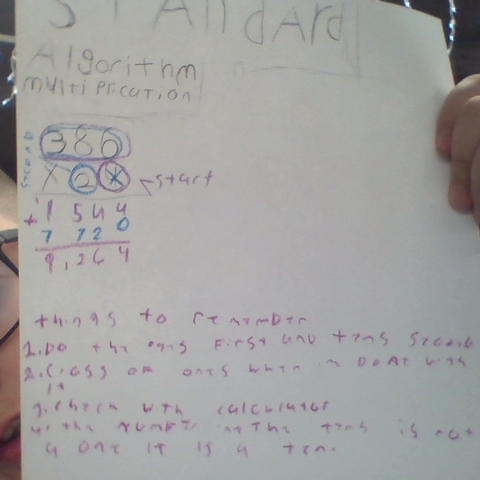 STANdARd
Algorithm
multiplication
second
386
X 24 ←start
+ 1 544
7 7 2 0
9,264
things to remember
1. Do the ones first and tens second
2. Cross off ones when
it
3. check with calculator
4. the number in the tens is not
a one it is a ten.